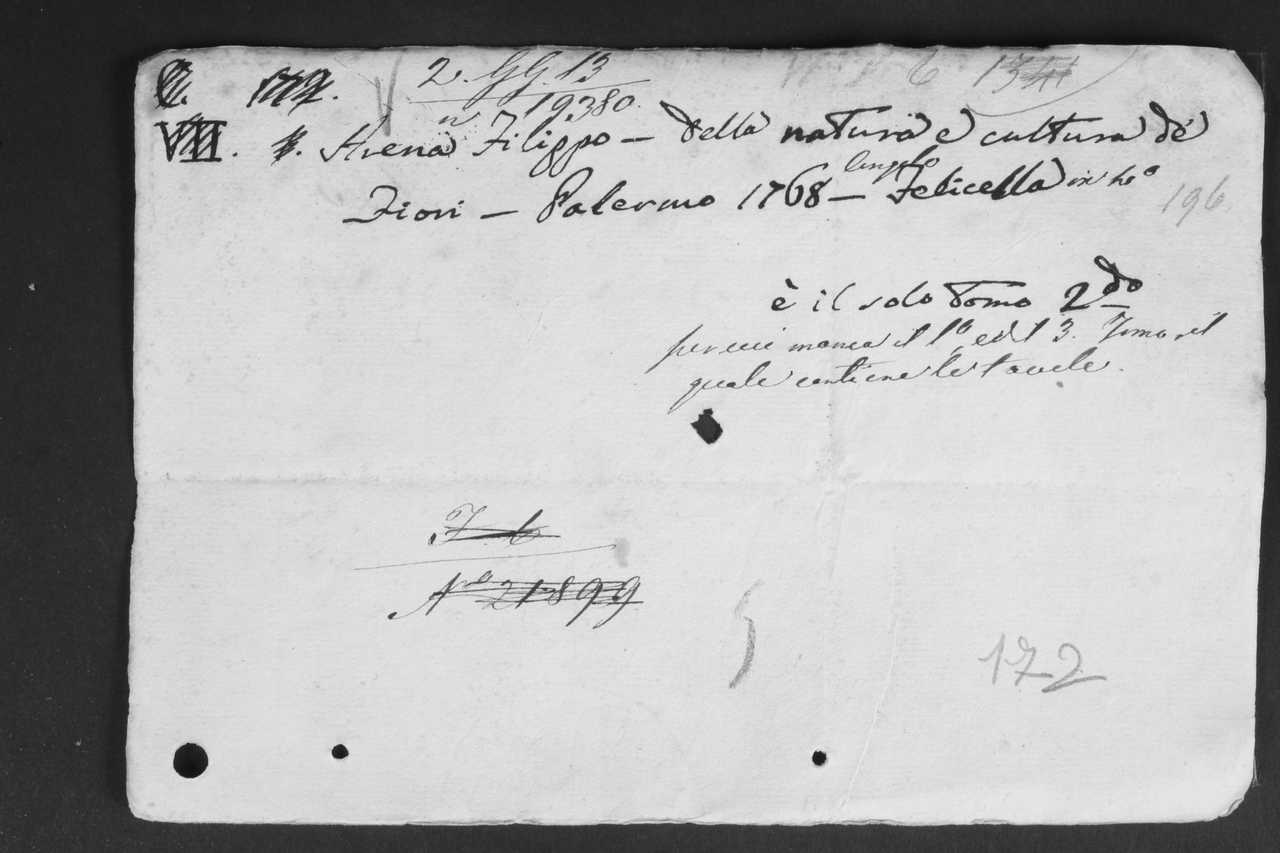 2. GG. 13
n 19380.
VIII. Arena Filippo – della natura e cultura de'
Fiori – Palermo 1768 – Angelo Felicella in 4.o
196
è il solo Tomo 2do
per cui manca il 1o ed il 3. Tomo, il
quale contiene le tavole.
No 21899
172